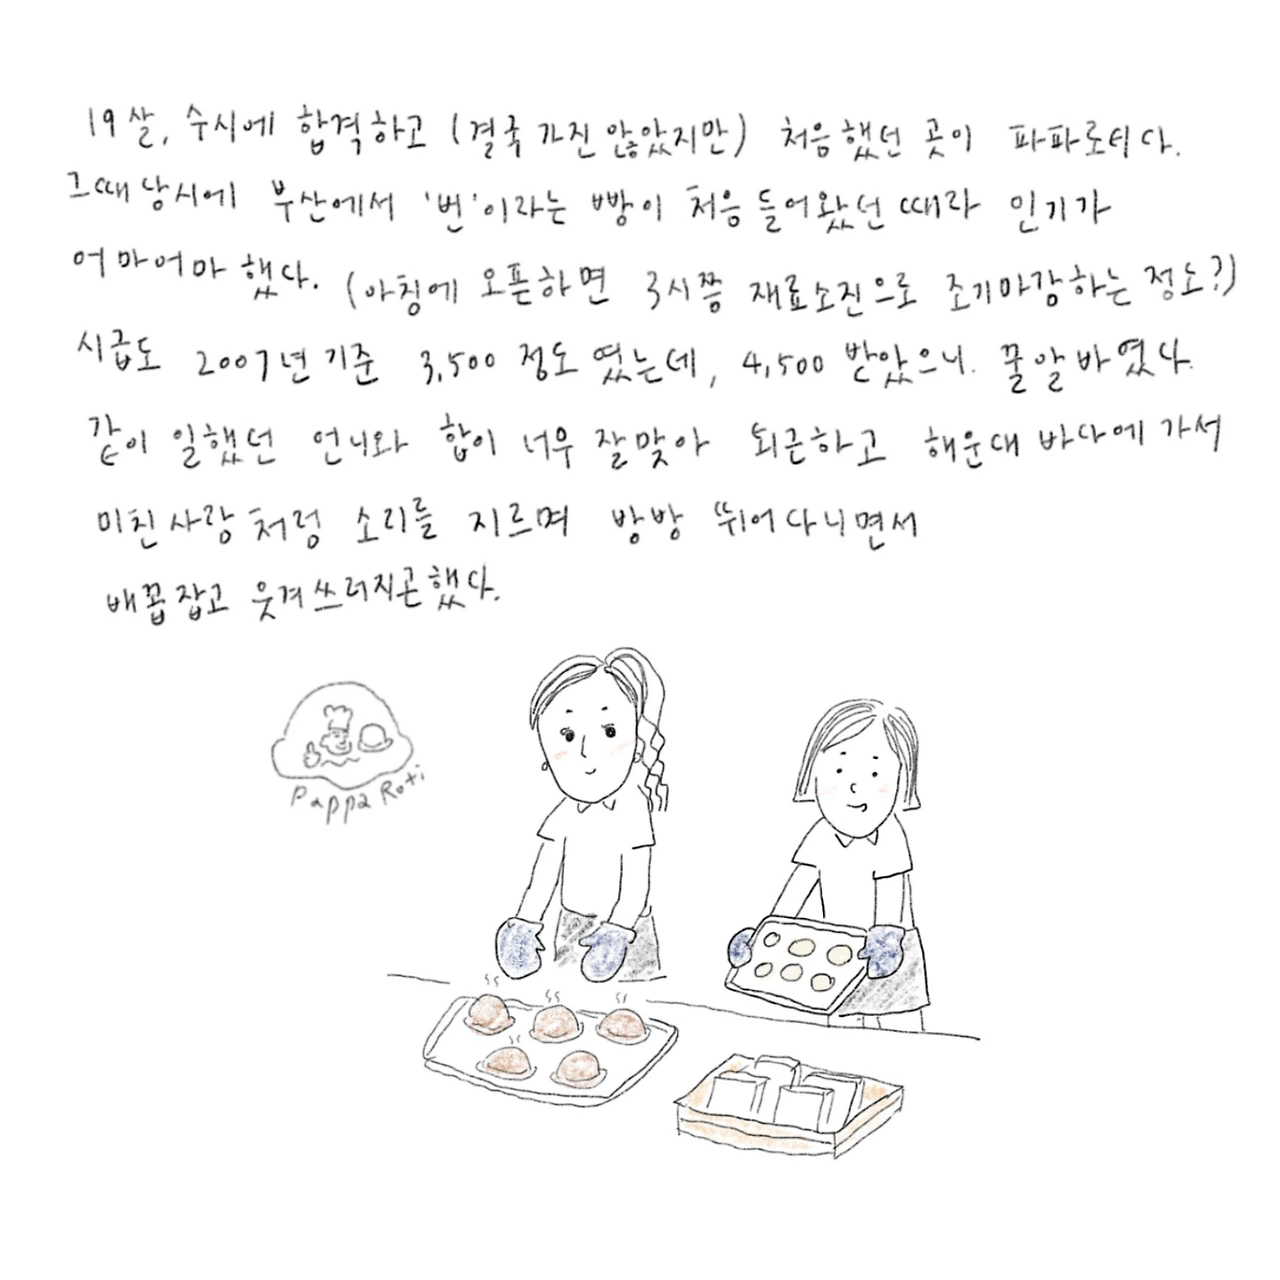 19살, 수시에 합격하고 (결국 가진 않았지만) 처음했던 곳이 파파로티다.
그때 당시에 부산에서 '번'이라는 빵이 처음 들어왔던 때라 인기가
어마어마 했다. (아침에 오픈하면 3시쯤 재료소진으로 조기마감하는 정도?)
시급도 2007년 기준 3,500 정도 였는데, 4,500 받았으니. 꿀알바였다.
같이 일했던 언니와 합이 너무 잘맞아 퇴근하고 해운대 바다에 가서
미친사람처럼 소리를 지르며 방방 뛰어다니면서
배꼽잡고 웃겨쓰러지곤했다.
Pappa Roti